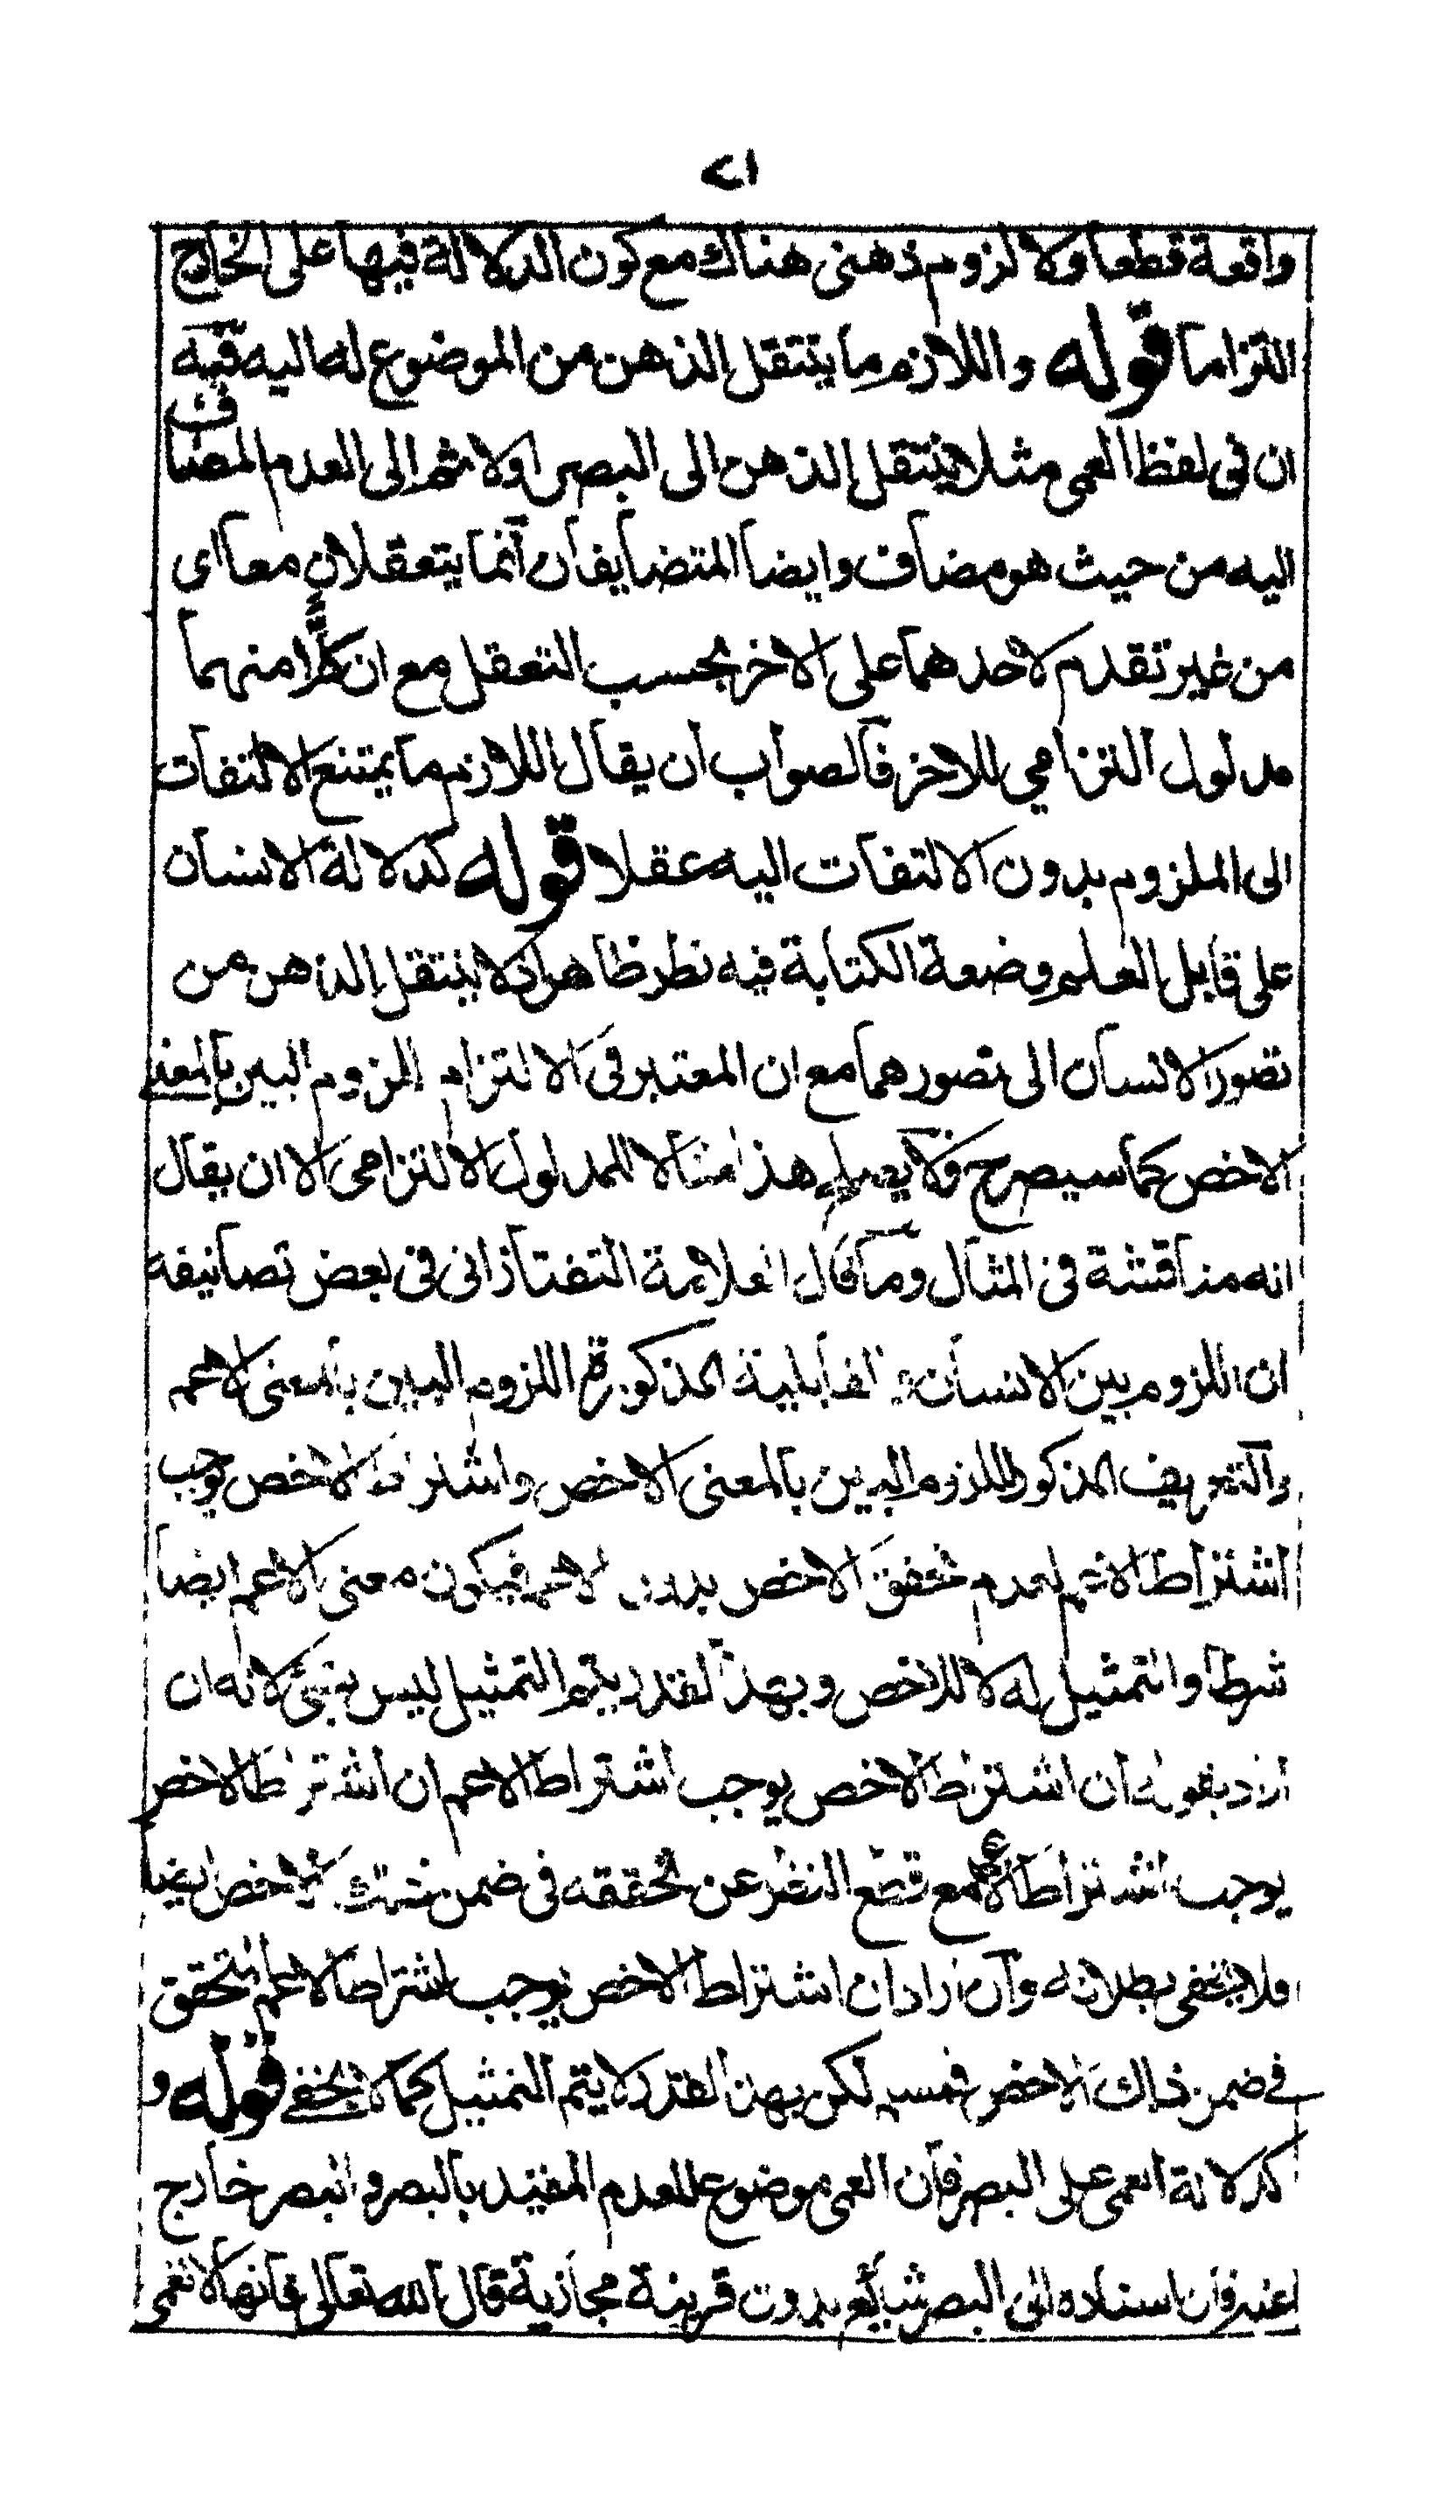 ٢١
واقعة قطعا ولا لزوم ذهني هناك مع كون الدلالة فيها على الخارج
التزاما قوله واللازم ما ينتقل الذهن من الموضوع له اليه فيه
ان في لفظ العمى مثلا ينتقل الذهن الى البصر اولا ثم الى العدم المضاف
اليه من حيث هو مضاف وايضا المتضايفان انما يتعقلان معا اى
من غير تقدم لاحدهما على الاخر بحسب التعقل مع ان كلا منهما
مدلول التزامي للاخر فالصواب ان يقال اللازم ما يمتنع الالتفات
الى الملزوم بدون الالتفات اليه عقلا قوله كدلالة الانسان
على قابل العلم وصنعة الكتابة فيه نظر ظاهر اذ لا ينتقل الذهن من
تصور الانسان الى تصورهما مع ان المعتبر في الالتزام اللزوم البين بالمعنى
الاخص كما سيصرح فلا يصلح هذا مثالا للمدلول الالتزامي الا ان يقال
انه مناقشة في المثال وما قال العلامة التفتازاني في بعض تصانيفه
ان اللزوم بين الانسان والقابلية المذكورة اللزوم البين بالمعنى الاعم
والتعريف المذكور للزوم البين بالمعنى الاخص واشتراط الاخص يوجب
اشتراط الاعم لعدم تحقق الاخص بدون الاعم فيكون معنى الاعم ايضا
شرطا والتمثيل له لا للاخص وبهذا القدر يتم التمثيل ليس بشئ لانه ان
اراد بقوله ان اشتراط الاخص يوجب اشتراط الاعم ان اشتراط الاخص
يوجب اشتراط الاعم مع قطع النظر عن تحققه في ضمن ذلك الاخص ايضا
فلا يخفى بطلانه وان اراد ان اشتراط الاخص يوجب اشتراط الاعم المتحقق
في ضمن ذلك الاخص فمسلم لكن بهذا القدر لا يتم التمثيل كما لا يخفى قوله و
كدلالة العمى على البصر فان العمى موضوع للعدم المقيد بالبصر والبصر خارج
عنه فان اسناده الى البصر شايع بدون قرينة مجازية قال الله تعالى فانها لا تعمى